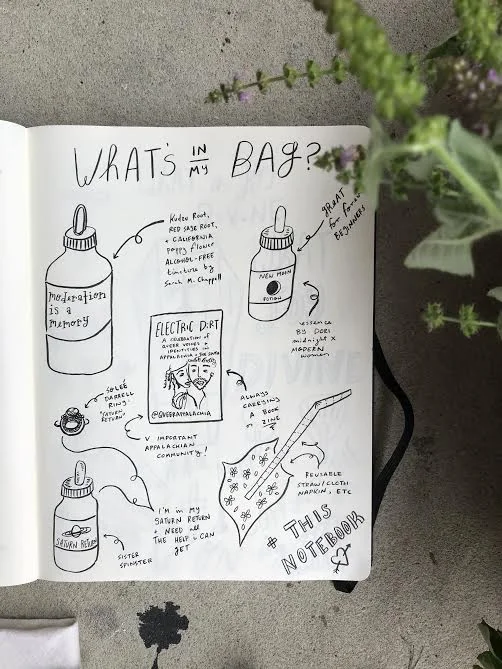 WHAT'S IN MY BAG?
Kudzu Root,
RED SAGE ROOT,
+ CALIFORNIA
poppy flower
ALCOHOL-FREE
tincture by
Sarah M. Chappell
great
for
BEGINNERS
moderation
is a
memory
NEW MOON
POTION
essence
BY DORI
midnight x
MODERN
women
ELECTRIC DIRT
A CELEBRATION OF
QUEER VOICES +
IDENTITIES in
APPALACHIA + THE SOUTH
@QUEERAPPALACHIA
SOLEÉ
DARRELL
RING:
"SATURN
RETURN"
V IMPORTANT
APPALACHIAN
COMMUNITY!
ALWAYS
CARRYING
A BOOK
or ZINE
REUSABLE
STRAW/CLOTH
NAPKIN, ETC
I'M in MY
SATURN RETURN
+ NEED all
THE HELP i CAN
GET
SATURN RETURN
SISTER
SPINSTER
+ THIS
NOTEBOOK